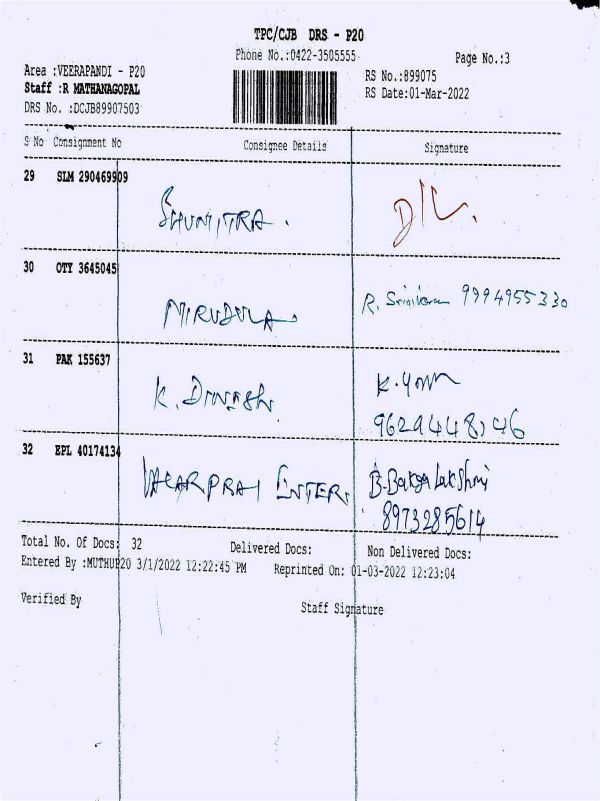 TPC/CJB DRS - P20
Phone No.:0422-3505555
Page No.:3
Area :VEERAPANDI - P20
RS No.:899075
Staff :R MATHANAGOPAL
RS Date:01-Mar-2022
DRS No. :DCJB89907503
S No Consignment No Consignee Details Signature
29 SLM 290469909
30 OTY 3645045
MIRUDULA
R. 9994955330
31 PAK 155637
K. Dinesh
K.
32 EPL 40174134
ENTER
B.
8973285614
Total No. Of Docs: 32 Delivered Docs: Non Delivered Docs:
Entered By :MUTHUP20 3/1/2022 12:22:45 PM Reprinted On: 01-03-2022 12:23:04
Verified By
Staff Signature